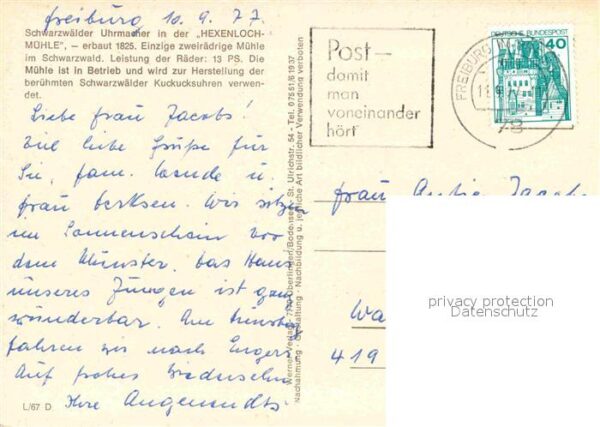 freiburg 10.9.77.
Schwarzwälder Uhrmacher in der „HEXENLOCH-
MÜHLE", – erbaut 1825. Einzige zweirädrige Mühle
im Schwarzwald. Leistung der Räder: 13 PS. Die
Mühle ist in Betrieb und wird zur Herstellung der
berühmten Schwarzwälder Kuckucksuhren verwen-
det.
Liebe frau Jacobs!
Viel liebe Grüße für
Sie, fam. Wende u.
frau berksen. Wir sitzen
im Sonnenschein vor
dem Münster. Das Haus
unseres Jungen ist ganz
wunderbar. Am
fahren wir nach
Auf frohes Wiedersehn
Ihre Angenendts
L/67 D
Werner-Verlag · Oberlingen/Bodensee · St. Ulrichstr. 54 - Tel. 07551/61937
Nachahmung · Gestaltung · Nachbildung u. jegliche Art bildlicher Verwendung verboten
Post –
damit
man
voneinander
hört
FREIBURG IM
78
DEUTSCHE BUNDESPOST
40
frau Antje Jacobs
Wa
419
privacy protection
Datenschutz